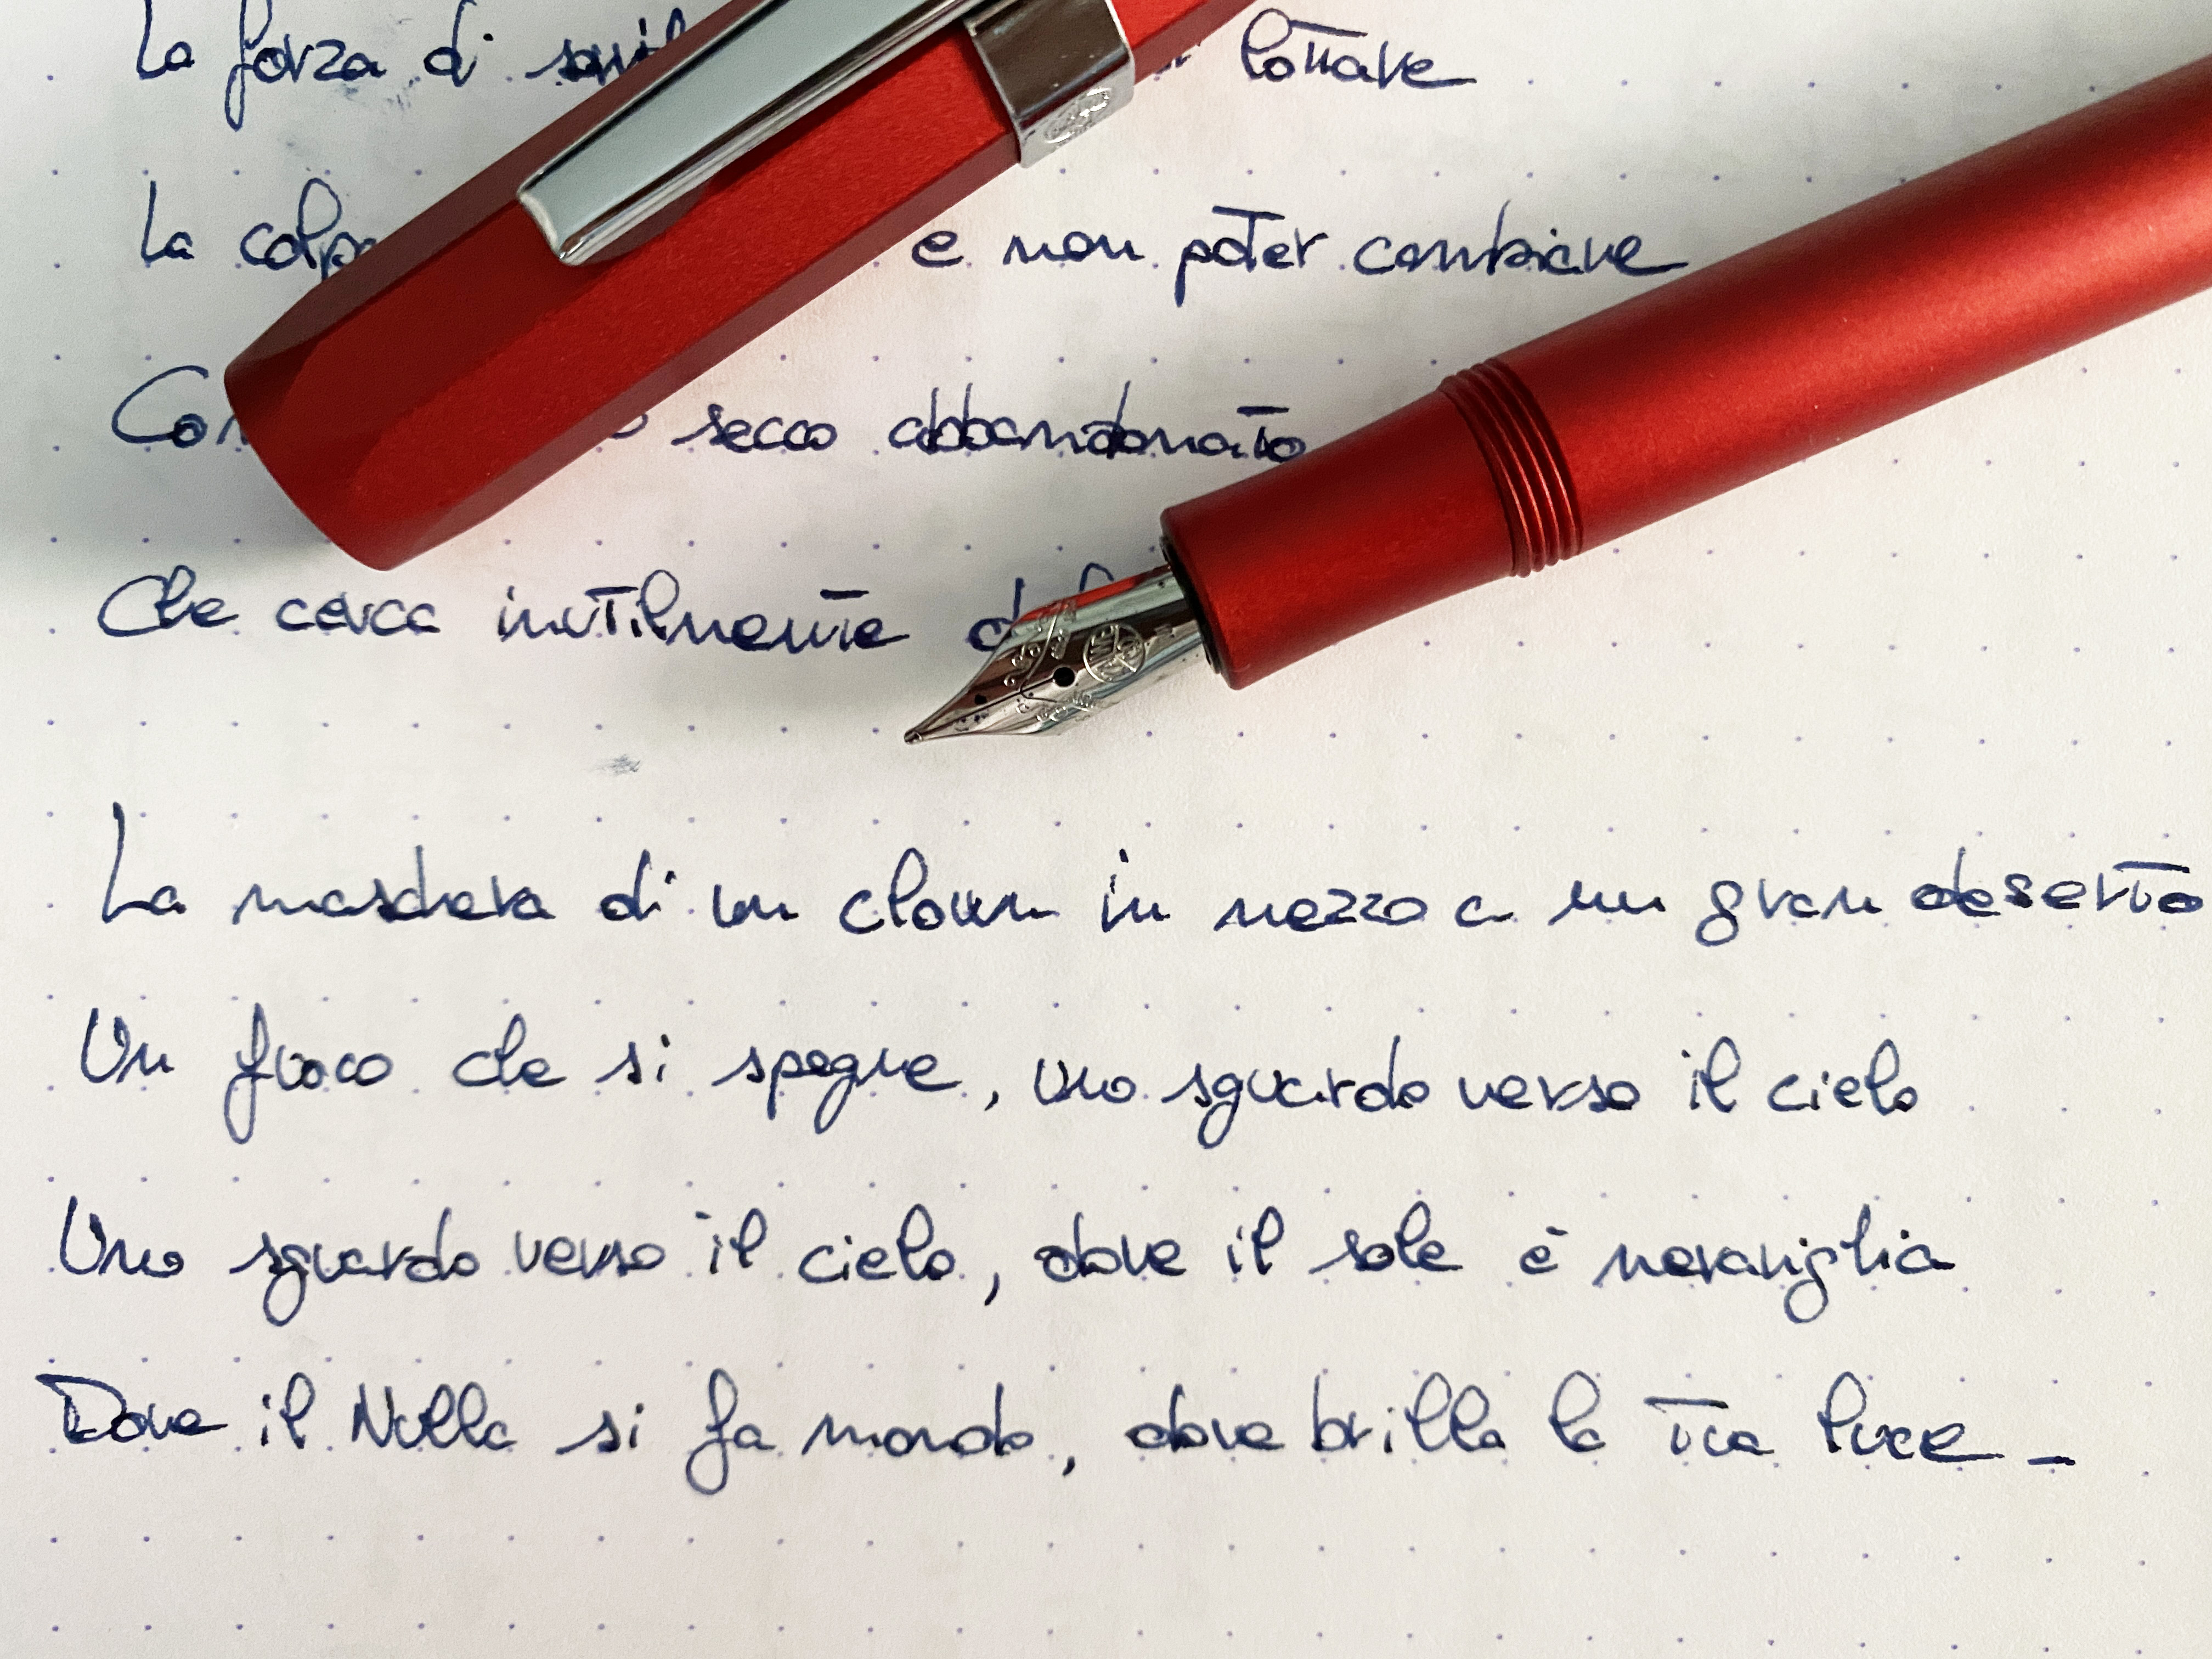 La forza di lottare
La e non poter cambiare
secco abbandonato
Che cerca inutilmente
La maschera di un clown in mezzo a un gran deserto
Un fuoco che si spegne, uno sguardo verso il cielo
Uno sguardo verso il cielo, dove il sole è meraviglia
Dove il Nulla si fa mondo, dove brilla la tua luce_